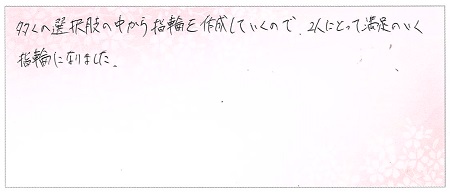 多くの選択肢の中から指輪を作成していくので、2人にとって満足のいく
指輪になりました。